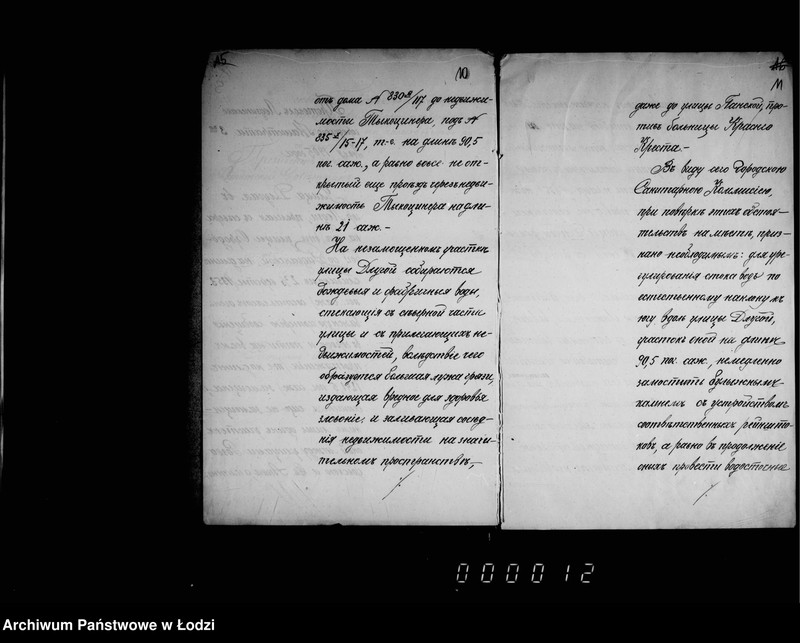 15
10
отъ дома № 830-в/117 до недвижи-
мости Тыкоцинера, подъ №
835-в/15-17, т.-е. на длинѣ 90,5
пог. саж., а равно вовсе не от-
крытый еще проѣздъ черезъ недви-
жимость Тыкоцинера на дли-
нѣ 21 саж. -
На незамощенномъ участкѣ
улицы Длугой собираются
дождевыя и фабричныя воды,
стекающія съ сѣверной части
улицы и съ прилегающихъ не-
движимостей, вслѣдствіе чего
образуется большая лужа грязи,
издающая вредное для здоровья
зловоніе, и заливающая сосѣд-
нія недвижимости на значи-
тельномъ пространствѣ,
11
даже до улицы Панской, про-
тивъ больницы Краснаго
Креста. -
Въ виду сего Городскою
Санитарною Коммиссіею,
при повѣркѣ этихъ обстоя-
тельствъ на мѣстѣ, приз-
нано необходимымъ: для уре-
гулированія стока водъ по
естественному наклону къ
югу вдоль улицы Длугой,
участокъ оной на длинѣ
90,5 пог. саж., немедленно
замостить булыжнымъ
камнемъ съ устройствомъ
соотвѣтственныхъ рейншто-
ковъ, а равно въ продолженіе
оныхъ провести водосточные
000012
Archiwum Państwowe w Łodzi